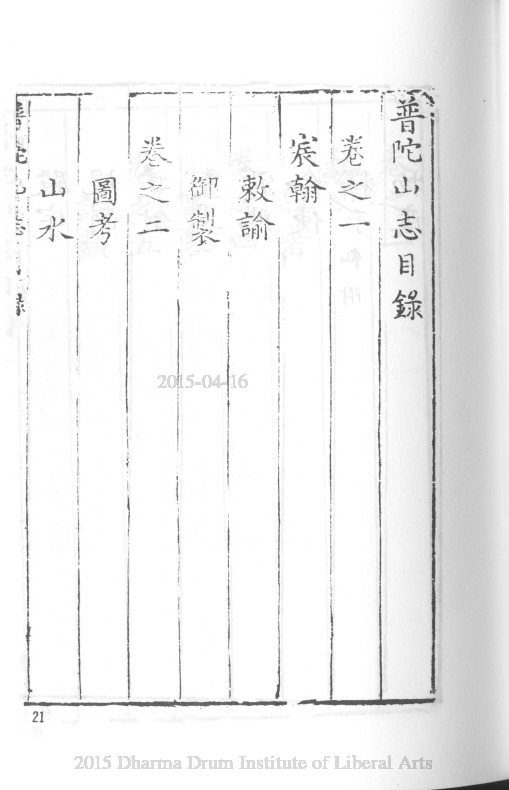 普陀山志目錄
卷之一
宸翰
敕諭
御製
卷之二
圖考
山水
普陀山志目錄
21
2015-04-16
2015 Dharma Drum Institute of Liberal Arts